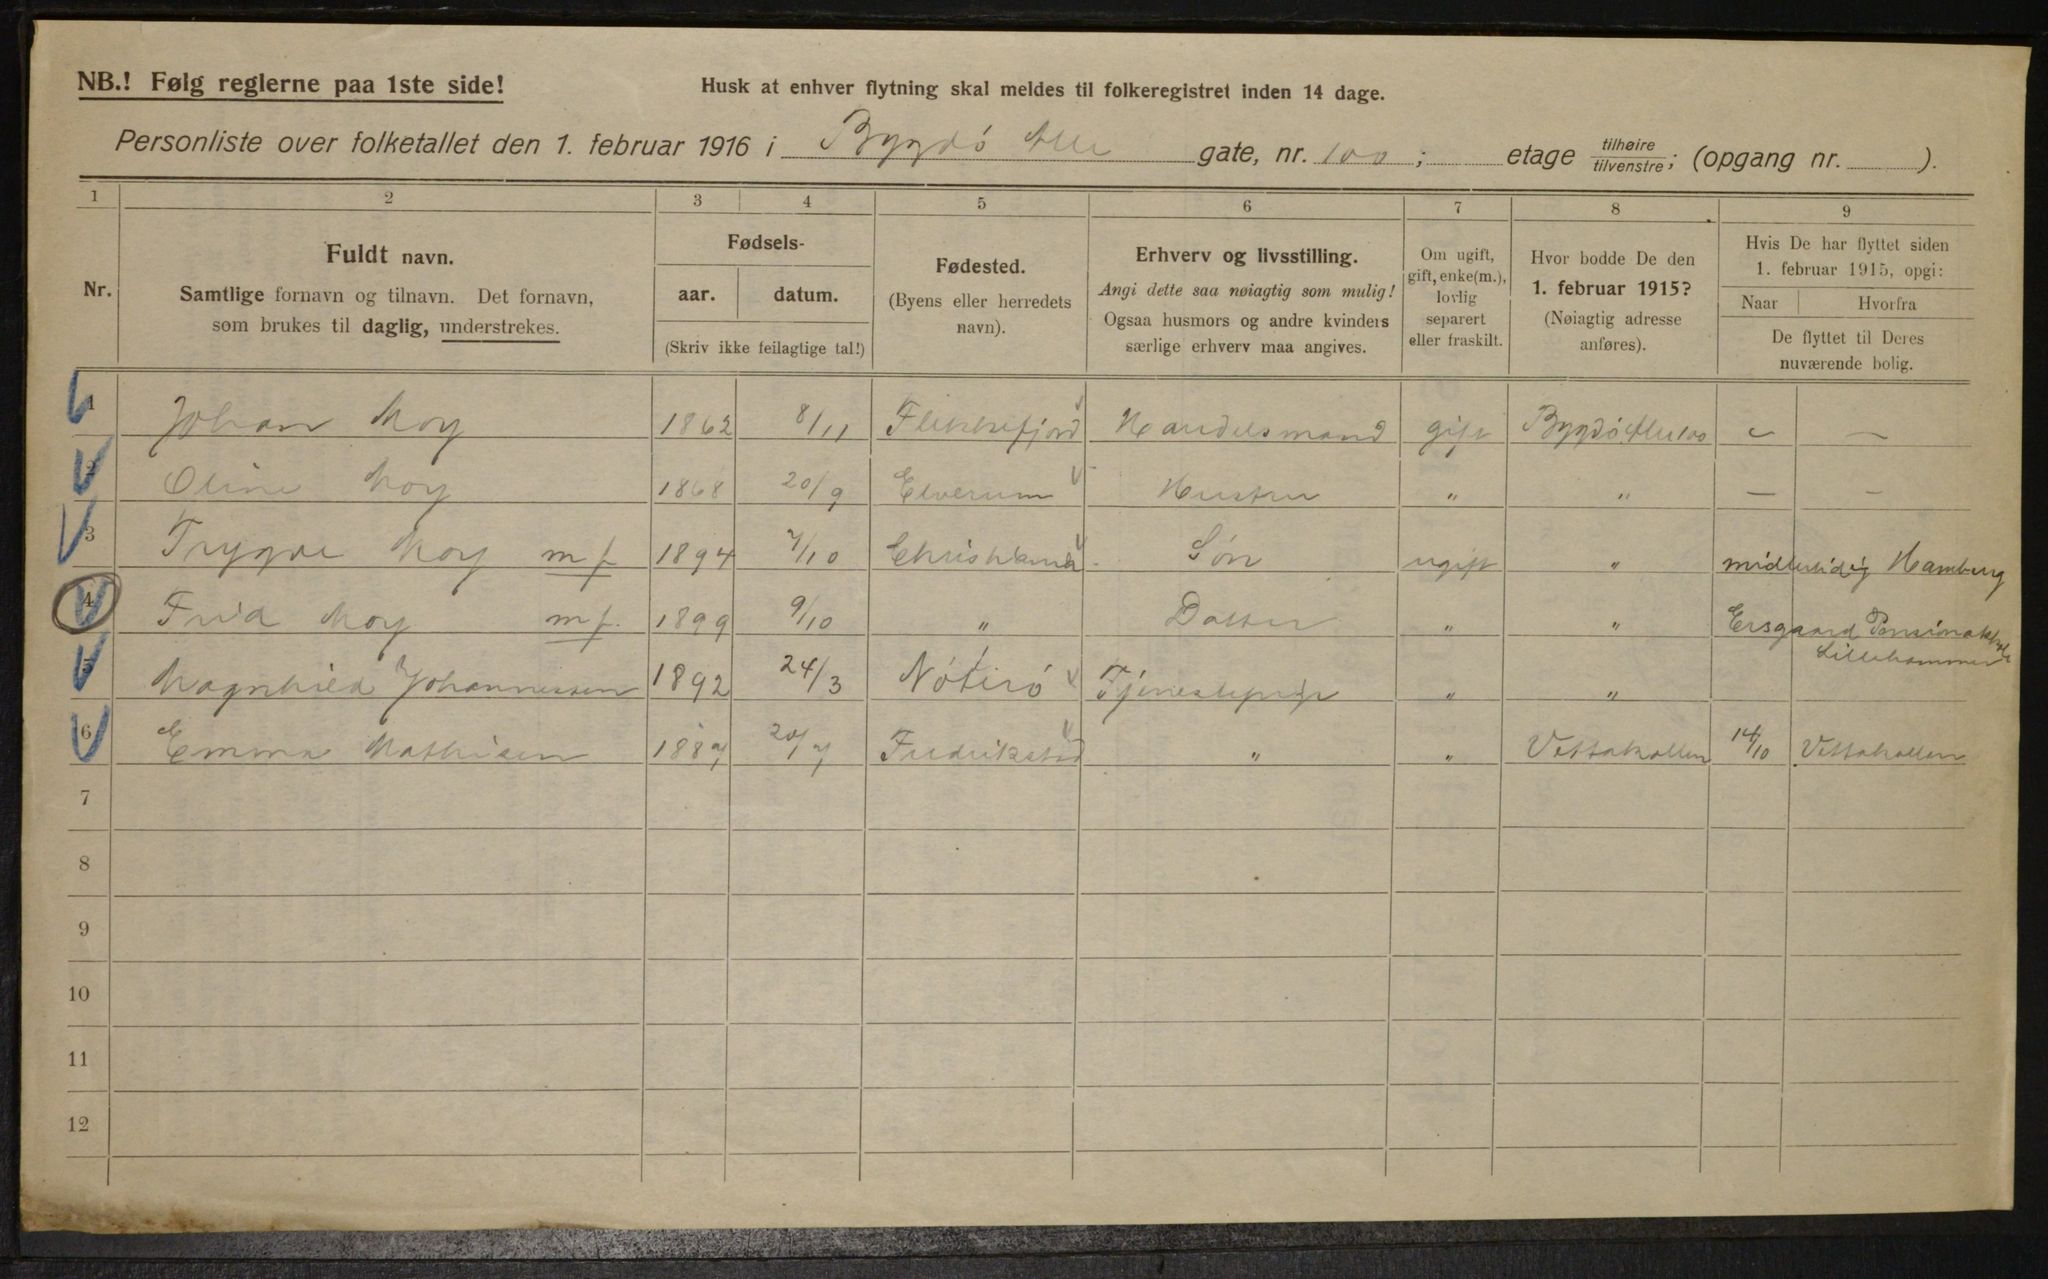 NB.! Følg reglerne paa 1ste side!
Husk at enhver flytning skal meldes til folkeregistret inden 14 dage.
Personliste over folketallet den 1. februar 1916 i Bygdö Alle gate, nr. 100; etage tilhøire/tilvenstre; (opgang nr. ).
1 2 3 4 5 6 7 8 9
Nr.
Fuldt navn.
Samtlige fornavn og tilnavn. Det fornavn,
som brukes til daglig, understrekes.
Fødsels-
aar. datum.
(Skriv ikke feilagtige tal!)
Fødested.
(Byens eller herredets
navn).
Erhverv og livsstilling.
Angi dette saa nøiagtig som mulig!
Ogsaa husmors og andre kvinders
særlige erhverv maa angives.
Om ugift,
gift, enke(m.),
lovlig
separert
eller fraskilt.
Hvor bodde De den
1. februar 1915?
(Nøiagtig adresse
anføres).
Hvis De har flyttet siden
1. februar 1915, opgi:
Naar Hvorfra
De flyttet til Deres
nuværende bolig.
1 Johan Moy 1862 8/11 Flekkefjord Handelsmand gift Bygdö Alle 100 – —
2 Oline Moy 1868 20/9 Elverum Hustru " " — –
3 Trygve Moy m f. 1894 7/10 Christiania Sön ugift " midlertidig Hamburg
4 Frid Moy m f. 1899 9/10 " Datter " " Ersgaard
Lillehammer
5 Magnhild Johannessen 1892 24/3 Nöterö Tjenestepige " "
6 Emma Mathisen 1887 20/7 Fredrikstad " " Vettakollen 14/10 Vettakollen
7
8
9
10
11
12